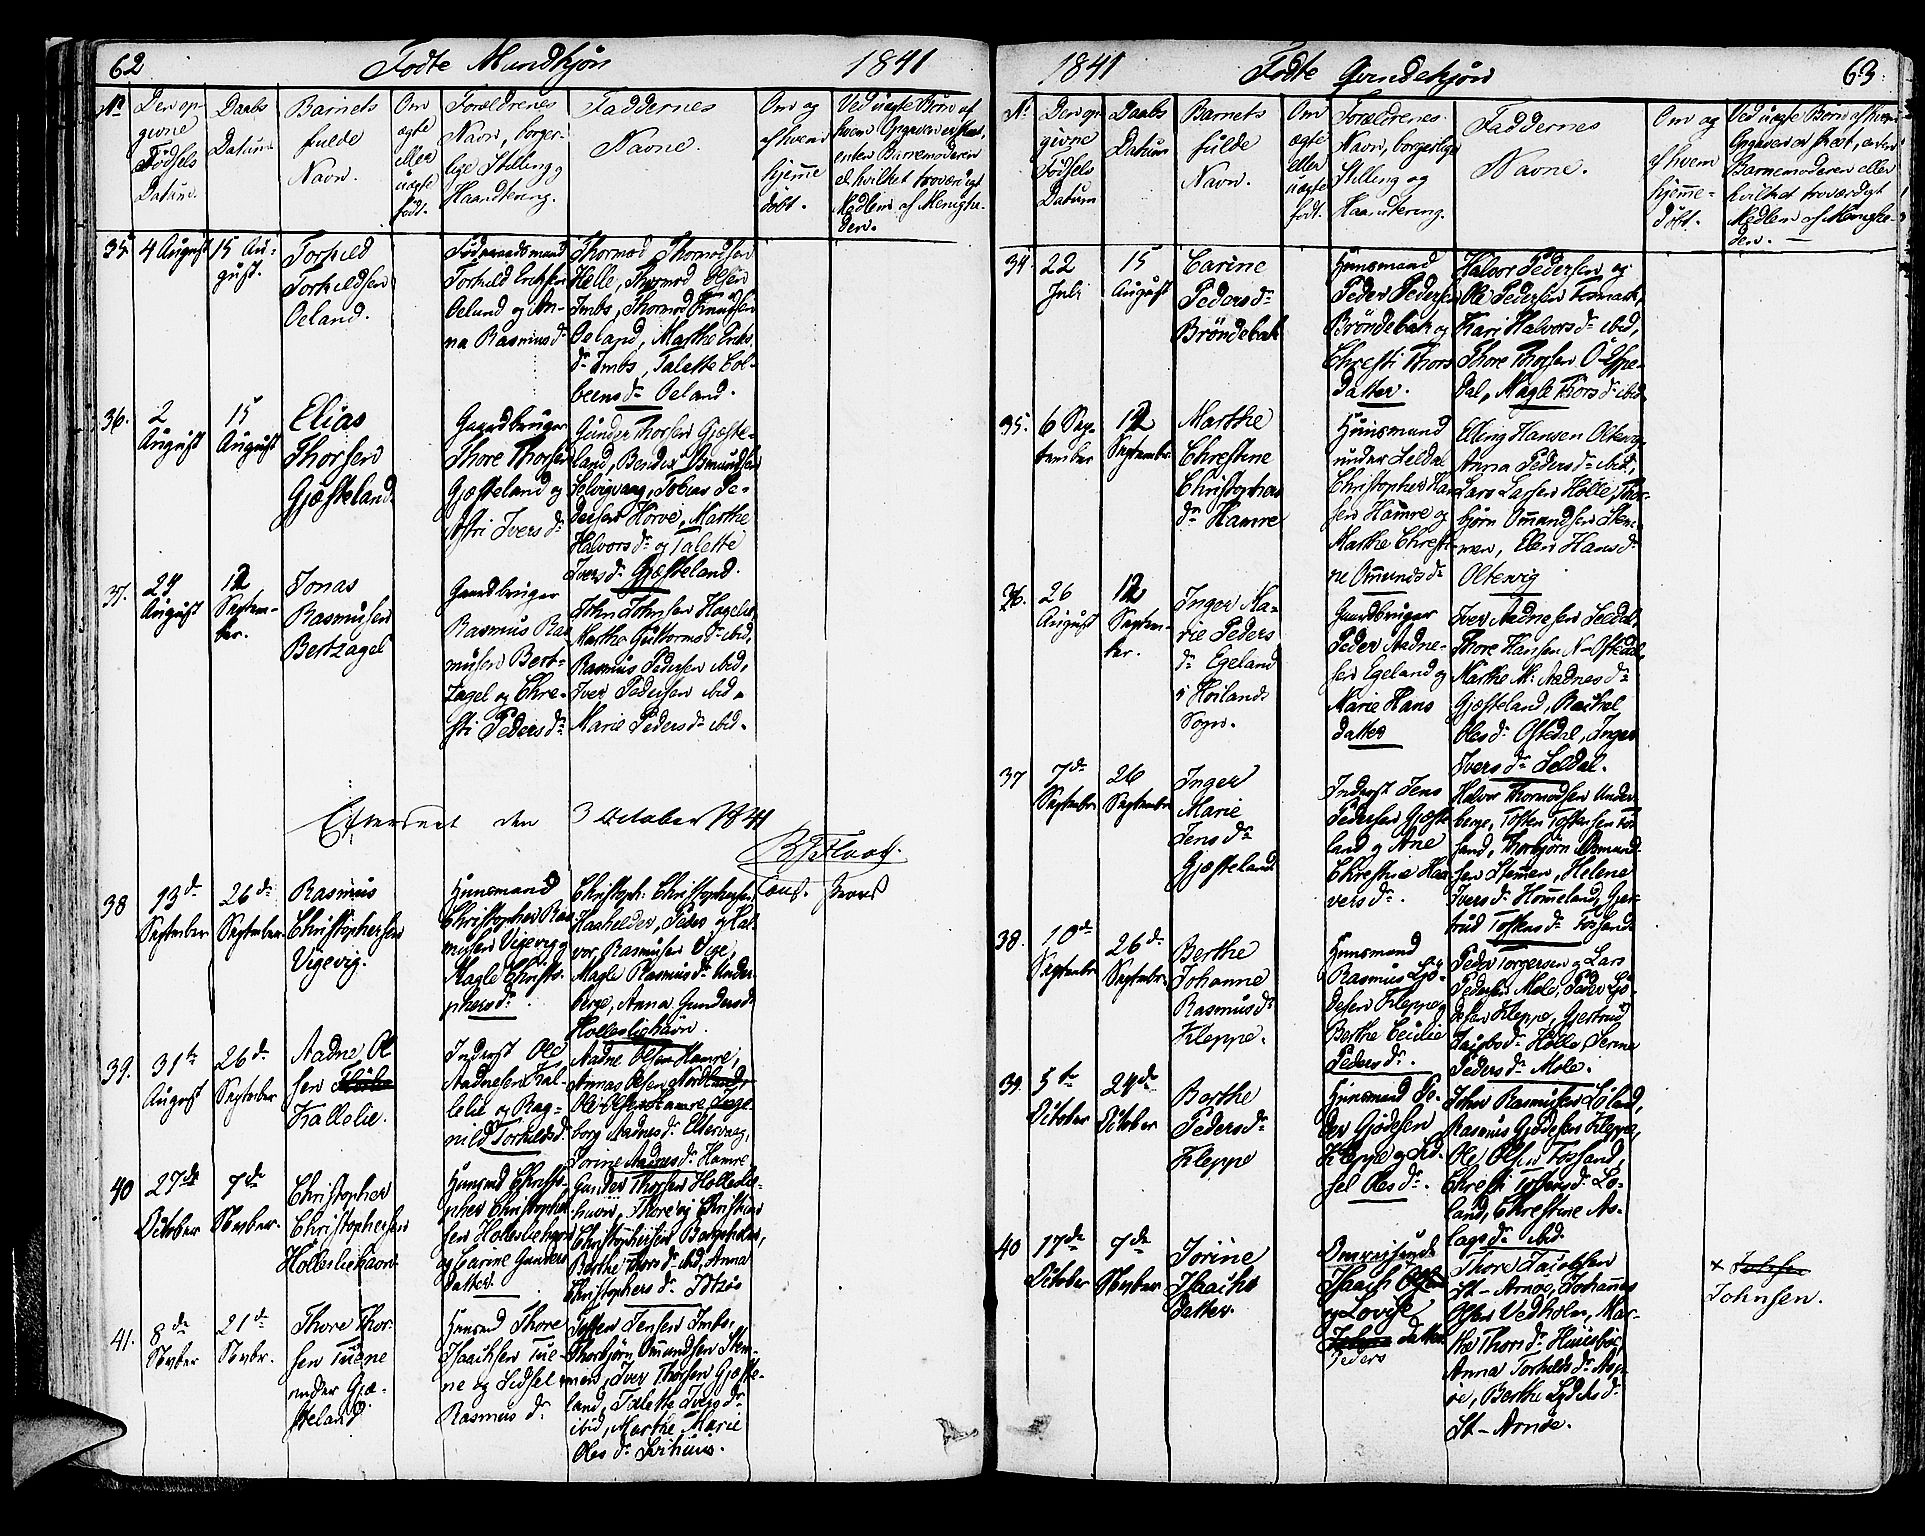 62 Fødte Mandkjøn 1841
No
Den op-
givne
Födsels
Datum.
Daabs
Datum
Barnets
fulde
Navn.
Om
ægte
eller
uægte
født.
Forældrenes
Navn, borger-
lige Stilling og
Haandtering.
Faddernes
Navne.
Om og
af hvem
hjemme
döbt.
Ved uægte Børn af
hvem Opgaven er skeet,
enten Barnemoderen
el. hvilket troværdigt
Medlem af Menighe-
den.
35.
4 August
15 Au-
gust.
Torkild
Torkildsen
Oeland.
Torkild Ericksen
Oeland og An-
na Rasmusdr
Thormod Thormodsen
Helle, Thormod Olsen
Imbs, Thormod Knudsen
Oeland, Marthe Eriks
dr Imbs, Talette Tol-
beensdr Oeland.
36.
2
August
15
August
Elias
Thorsen
Gjæsteland
Gaardbruger
Thore Thorsen
Gjæsteland og
Astri Iversdr
Gunder Thorsen Gjæste-
land, Bendix Asmundsen
Selvigvaag, Tobias Pe-
dersen Horve, Marthe
Halvorsdr og Talette
Iversdr Gjæsteland.
37.
24
August
12
Septem-
ber.
Jonas
Rasmusen
Bertzagel
Gaardbruger
Rasmus Ras
musen Bert-
zagel og Chre-
sti Pedersdr
John Johnsen Hagelie
Martha Guttormsdr ibid,
Rasmus Pedersen ibid,
Iver Pedersen ibid
Marie Pedersdr ibid.
Efterseet den 3 October 1841
38
13de
September
26de
September
Rasmus
Christophersen
Vigevig.
Huusmand
Christopher Ras
musen Vigevig og
Magle Christo-
phersdr
Christoph. Christophersen
Haahelder, Peder og Hal-
vor Rasmusen Vige,
Magle Rasmusdr Under-
berge, Anna Gundersdr
Hollesliehavn.
39.
31te
August
26de
September
Aadne Ol
sen
Kallelie.
Inderst Ole
Aadnesen Kal-
lelie og Rag-
nild Torkildsdr
Aadne Olsen Hamre,
Annas Olsen Nordland,
Ole Olsen Hamre Inge
borg Aadnesdr Eltervaag,
Jorine Aadnesdr Hamre
40
27de
October
7de
Novber.
Christopher
Christophersen
Holleslichavn
Huusmd Christo-
pher Christopher
sen Holleslichavn
og Carine Gunders
datter.
Gunder Thorsen Holleslie-
havn, Thore og Christian
Christophersen Bergeholen,
Berthe Thorsdr ibid, Anna
Christophersdr
41.
8de
Novber
21de
Novbr.
Thore Thor-
sen Tuene
under Gjæ-
steland
Huusmd Thore
Isachsen Tue-
ne og Sidsel
Rasmusdr
Tosten Jensen Imbs,
Thorbjörn Omundsen Stem-
men, Iver Thorsen Gjæste-
land, Talette Iversdr
ibid, Marthe Marie
Olesdr
1841 Fødte Qvindekjøn 63.
No
Den op-
givne
Födsels
Datum
Daabs
Datum
Barnets
fulde
Navn.
Om
ægte
eller
uægte
født.
Forældrenes
Navn, borgerlige
Stilling og
Haandtering.
Faddernes
Navne.
Om og
af hvem
hjemme-
döbt.
Ved uægte Børn af hvem
Opgaven er skeet, enten
Barnemoderen eller
hvilket troværdigt
Medlem af Menighe-
den.
34.
22
Juli
15
August
Carine
Pedersdr
Bröndebak
Huusmand
Peder Pedersen
Bröndebak og
Chresti Thors
datter.
Halvor Pedersen og
Ole Pedersen Fosmark,
Kari Halvorsdr ibid,
Thore Thorsen Ö-Espe-
dal, Magle Thorsdr ibid.
35.
6 Sep-
tember
12
Septembr.
Marthe
Chrestine
Christophers
dr Hamre
Huusmand
under Seldal
Christopher Han
sen Hamre og
Marthe Chresti-
ne Omundsdr
Elling Hansen Oltervig
Anna Pedersdr ibid,
Lars Larsen Holle, Thor-
bjørn Omundsen Stem-
men, Elen Hansdr
Oltervig
36.
26
August
12
Septem-
ber.
Inger Ma-
rie Peders
dr Egeland
i Höilands
Sogn.
Gaardbruger
Peder Aadne-
sen Egeland og
Marie Hans
datter
Iver Aadnesen Seldal,
Thore Hansen N-Ostedal,
Marthe M. Aadnesdr
Gjæsteland, Rachel
Olesdr Ostedal, Inger
Iversdr Seldal.
37
7de
Septembr
26
Septembr
Inger
Marie
Jensdr
Gjæsteland
Inderst Jens
Pedersen Gjæste
land og Ane
Chrestine Haa-
versdr.
Halvor Thormodsen Under
berge, Tosten Tostensen Fos
sand, Thorbjörn Osmund
sen Stemen, Helene
Iversdr Hommeland, Gjer-
trud Tostensdr Fossand
38.
10de
Septembr
26de
Septembr.
Berthe
Johanne
Rasmusdr
Kleppe.
Huusmand
Rasmus Gjö-
desen Kleppe og
Berthe Cecilie
Pedersdr.
Peder Torgersen og Lars
Pedersen Mele, Peder Gjö-
desen Kleppe, Gjertrud
Jacobsdr Holle Serine
Pedersdr Mele.
39.
5te
October
24de
October
Berthe
Pedersdr
Kleppe
Huusmand Pe-
der Gjödesen
Kleppe og Sid-
sel Olesdr.
John Rasmusen Löland,
Rasmus Gjödesen Kleppe,
Ole Olsen Fossand,
Chresti Tostensdr Lö-
land, Chrestine As-
lagsdr ibid.
40
17de
October
7de
Novber
Jorine
Isachs
datter.
Isach Olsen
og Lovise
Peders datter
Thore Jacobsen
St-Arnöe, Johannes
Olsen Vedholm, Mar-
the Thorsdr Huusebö,
Anna Torkildsdr
Berthe Lydersdr
St-Arnöe.
x
Johnsen.